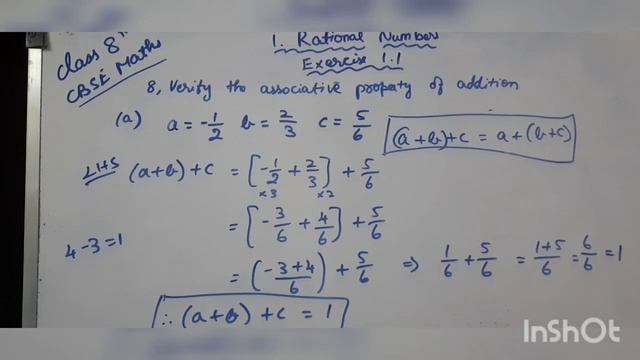 class 8th
CBSE Maths
1. Rational Number
Exercise 1.1
8, Verify the associative property of addition
(a) a = -1/2 b = 2/3 c = 5/6
(a+b)+c = a+(b+c)
LHS (a+b)+c = [-1/2 + 2/3] + 5/6
×3 ×2
= [-3/6 + 4/6] + 5/6
4-3=1
= (-3+4/6) + 5/6 ⇒ 1/6 + 5/6 = 1+5/6 = 6/6 = 1
∴ (a+b)+c = 1
InShOt